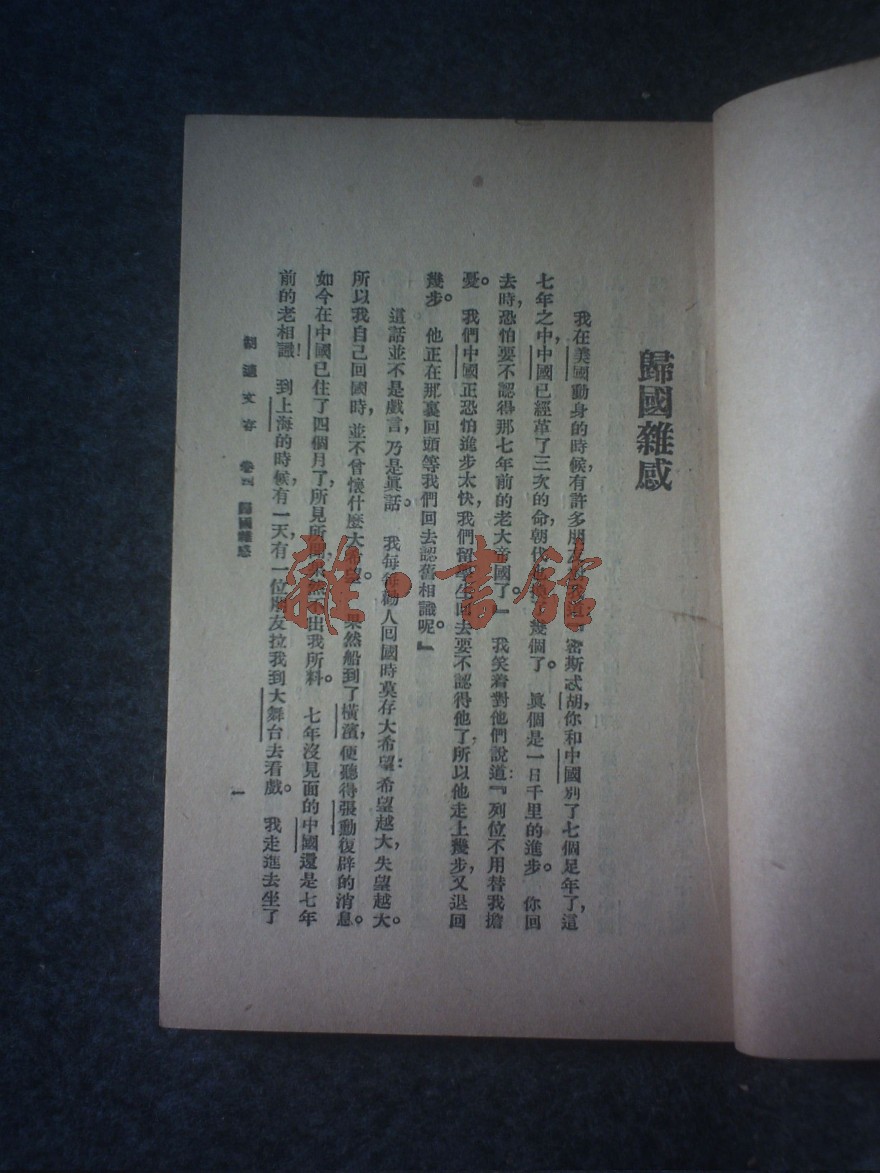 歸國雜感
我在美國動身的時候,有許多朋友對我道:『密斯忒胡,你和中國別了七個足年了,這
七年之中,中國已經革了三次的命,朝代也換了幾個了。真個是一日千里的進步。你回
去時,恐怕要不認得那七年前的老大帝國了。』我笑着對他們說道:『列位不用替我擔
憂。我們中國正恐怕進步太快,我們留學生回去要不認得他了,所以他走上幾步,又退回
幾步。他正在那裏回頭等我們回去認舊相識呢。』
這話並不是戲言,乃是真話。我每每勸人回國時莫存大希望:希望越大,失望越大。
所以我自己回國時,並不曾懷什麼大希望。果然船到了橫濱,便聽得張勳復辟的消息。
如今在中國已住了四個月了,所見所聞,果然不出我所料。七年沒見面的中國還是七年
前的老相識!到上海的時候,有一天,有一位朋友拉我到大舞台去看戲。我走進去坐了
胡適文存 卷四 歸國雜感
一
雜·書館